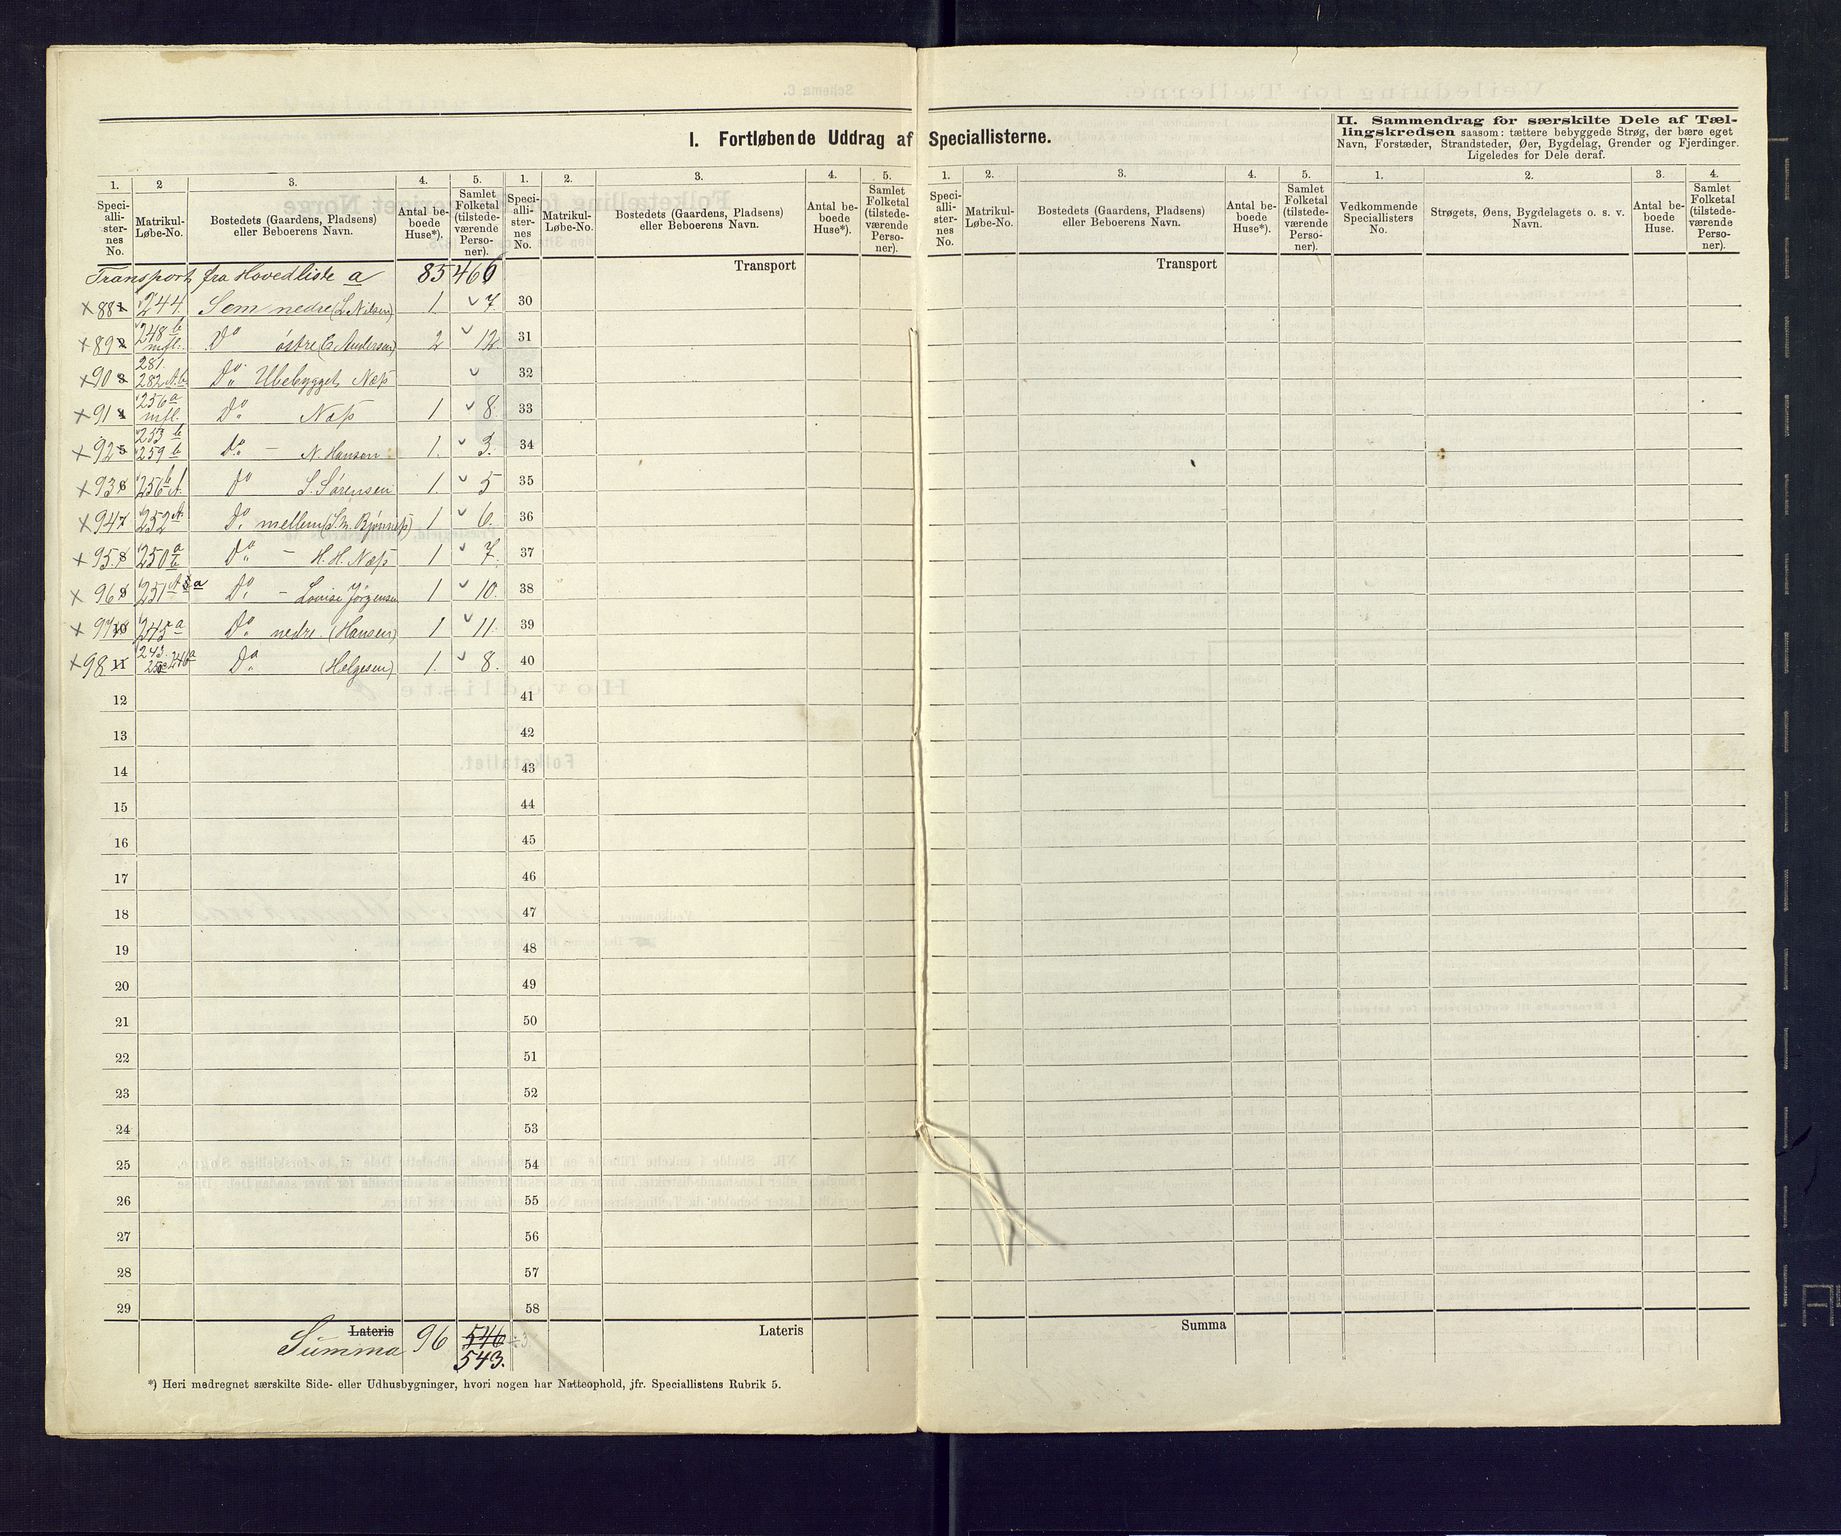 I. Fortløbende Uddrag af Speciallisterne.
II. Sammendrag for særskilte Dele af Tæl-
lingskredsen saasom: tættere bebyggede Strøg, der bære eget
Navn, Forstæder, Strandsteder, Øer, Bygdelag, Grender og Fjerdinger.
Ligeledes for Dele deraf.
1. 2 3. 4. 5. 1. 2. 3. 4. 5. 1. 2. 3. 4. 5. 1. 2. 3. 4.
Speci-alli-ster-nes No. Matrikul-Løbe-No. Bostedets (Gaardens, Pladsens) eller Beboerens Navn. Antal be-boede Huse*). Samlet Folketal (tilstede-værende Perso-ner).
Speci-alli-ster-nes No. Matrikul-Løbe-No. Bostedets (Gaardens, Pladsens) eller Beboerens Navn. Antal be-boede Huse*). Samlet Folketal (tilstede-værende Perso-ner).
Speci-alli-ster-nes No. Matrikul-Løbe-No. Bostedets (Gaardens, Pladsens) eller Beboerens Navn. Antal be-boede Huse*). Samlet Folketal (tilstede-værende Perso-ner).
Vedkommende Speciallisters No. Strøgets, Øens, Bygdelagets o. s. v. Navn. Antal be-boede Huse. Samlet Folketal (tilstede-værende Perso-ner).
Transport fra Hovedliste a 85 466 Transport Transport
x 88 1 244. Sem nedre (L. Nilsen) 1. 7. 30
x 89 2 248 b mfl. Do østre (E. Andersen) 2 12. 31
x 90 3 281. 282 A.b Do Ubebygget Næs 32
x 91 4 256 a mfl. Do Næs 1 8. 33
x 92 5 253 b 259 b Do – N. Hansen 1. 3. 34
x 93 6 256 b A. Do S. Sørensen 1. 5 35
x 94 7 252 A. Do mellem (S. M. Bjønnes) 1 6. 36
x 95. 8 250 a b Do – H. H. Næs 1 7. 37
x 96 9 251 A a Do – Lovise Jørgensen 1 10. 38
x 97 10 245 a Do nedre (Hansen) 1 11. 39
x 98 11 243. 246 a Do (Helgesen) 1. 8. 40
12 41
13 42
14 43
15 44
16 45
17 46
18 47
19 48
20 49
21 50
22 51
23 52
24 53
25 54
26 55
27 56
28 57
29 58
Lateris Summa 96 546 ÷3. Lateris Summa
543.
*) Heri medregnet særskilte Side- eller Udhusbygninger, hvori nogen har Natteophold, jfr. Speciallistens Rubrik 5.